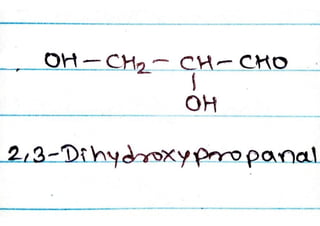 OH-CH₂-CH-CHO
OH
2,3-Dihydroxypropanal